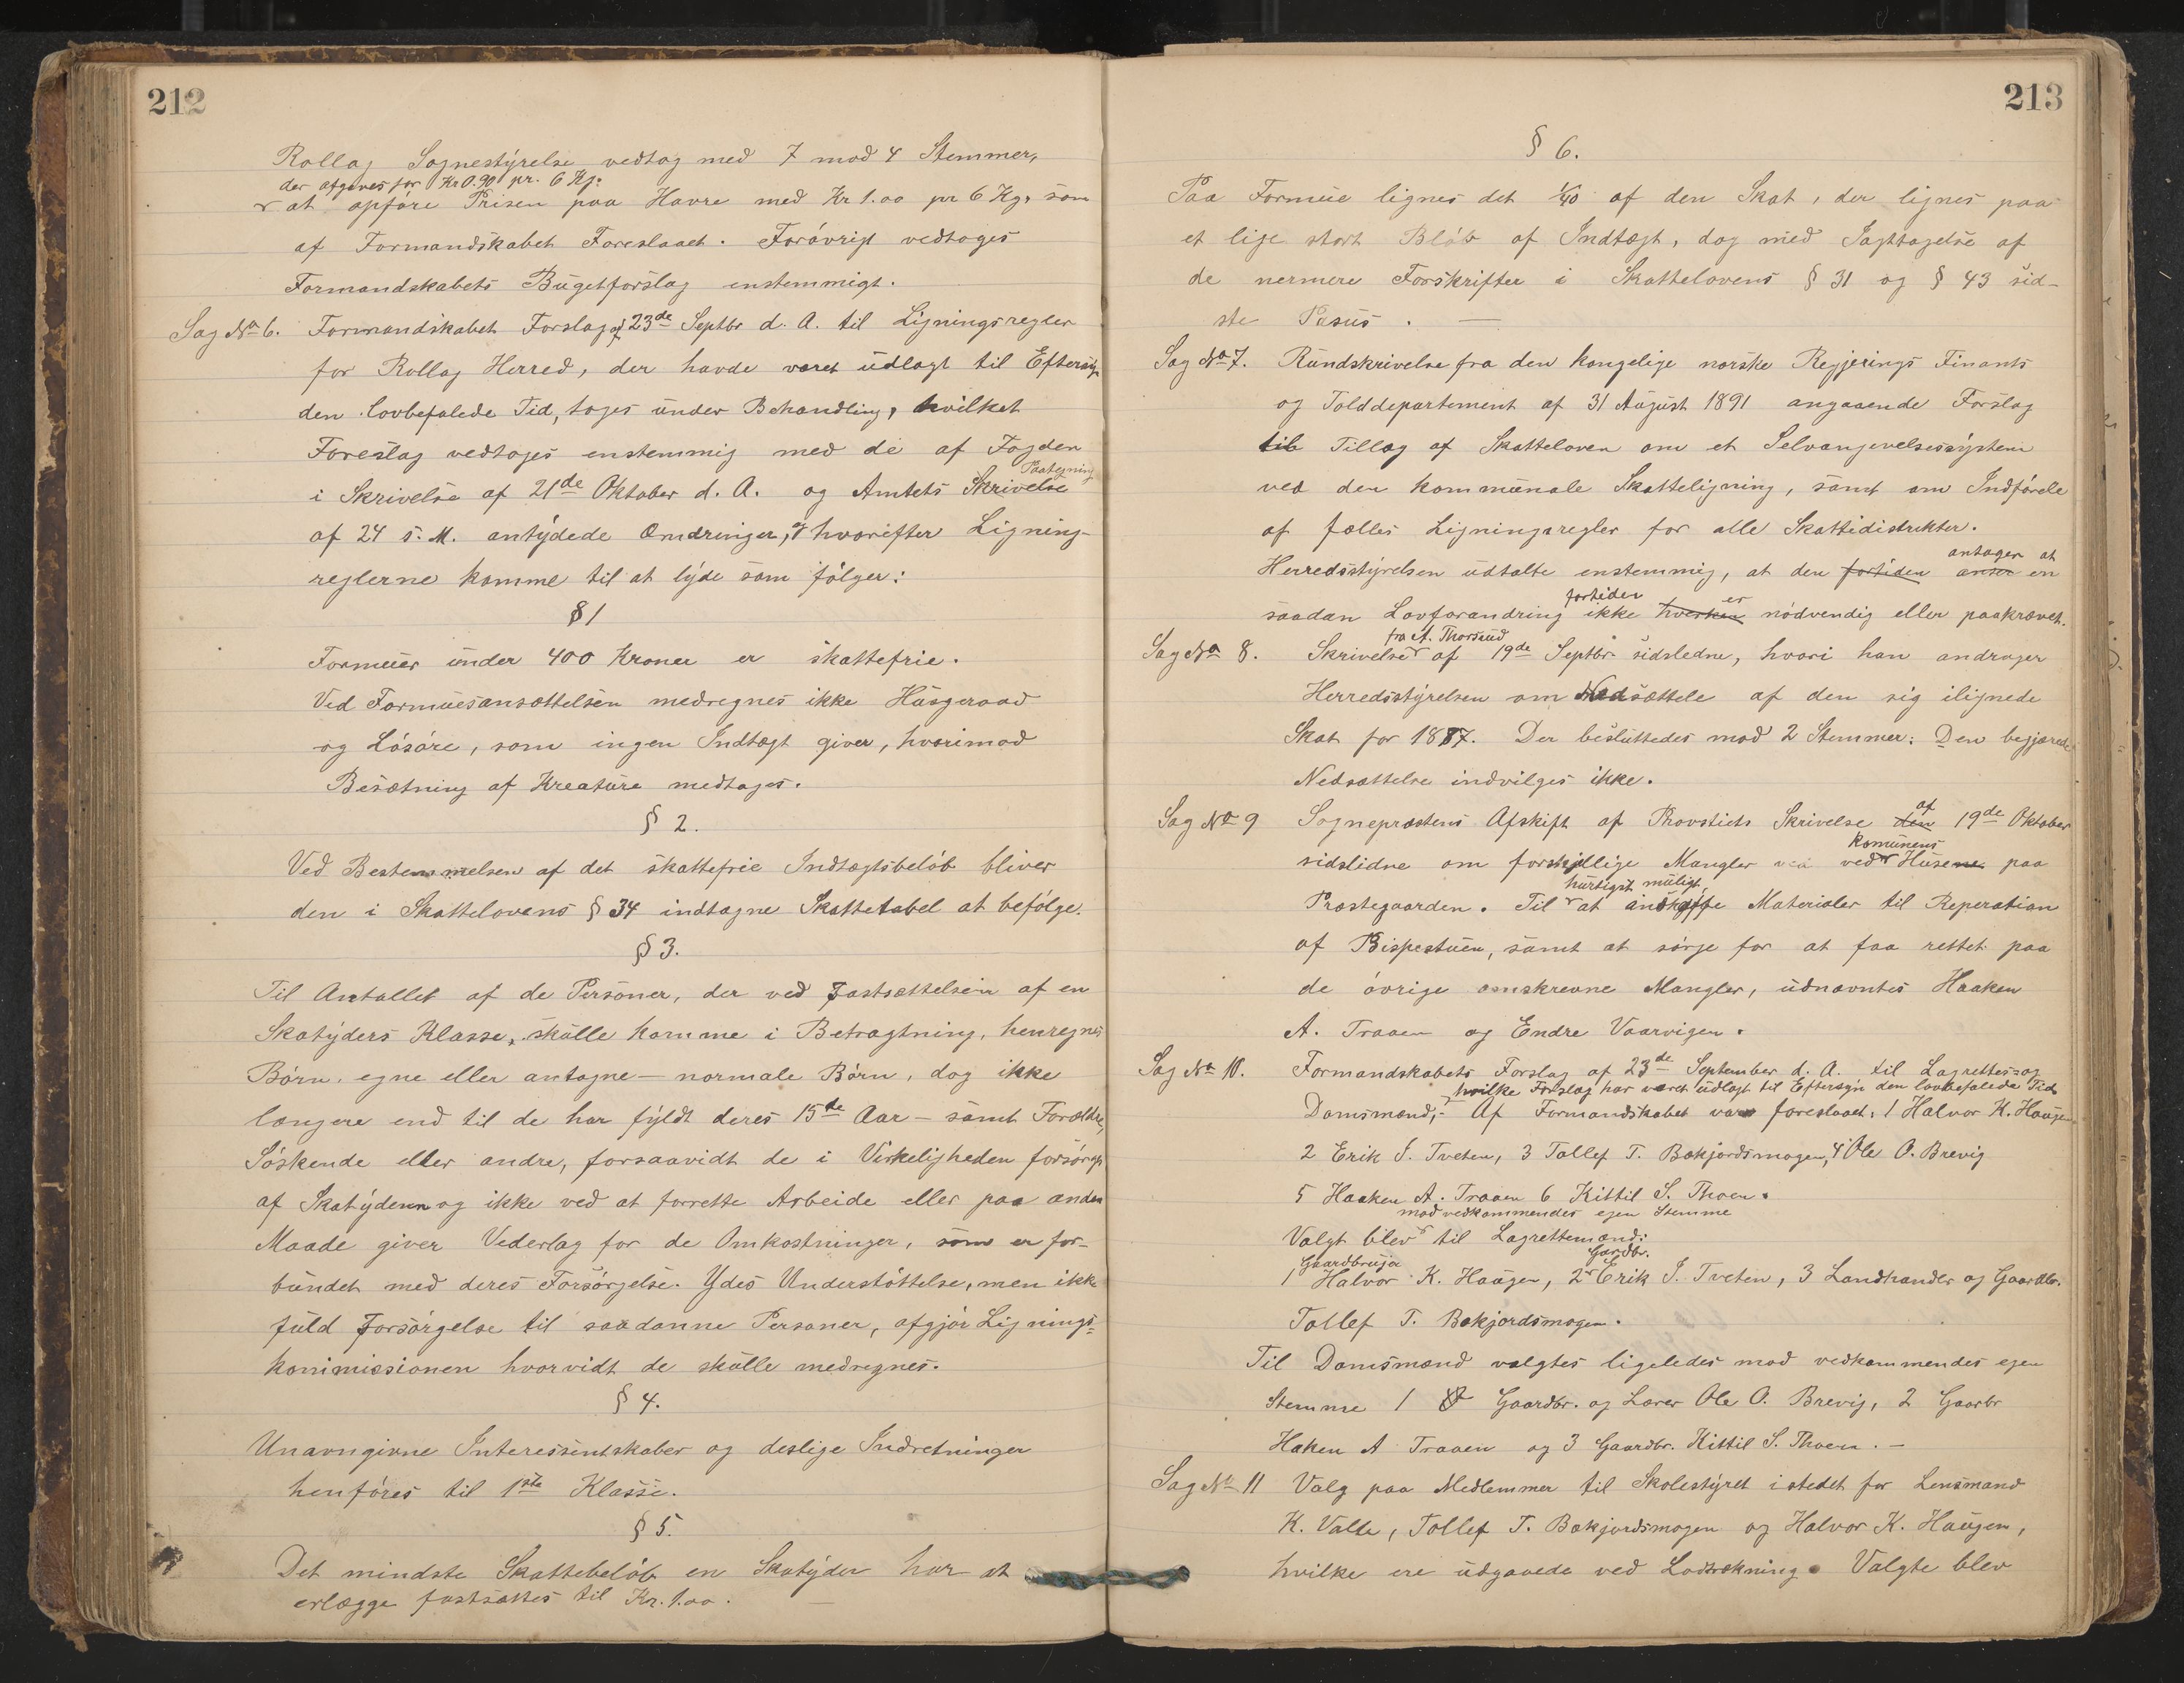 212
Rollag Sognestyrelse vedtog med 7 mod 4 Stemmer,
der afgaves for Kr 0.90 pr. 6 Kg.
at opføre Prisen paa Havre med Kr 1.00 pr 6 Kg, som
af Formandskabet Foreslaaet. Forøvrigt vedtoges
Formandskabets Bugetforslag enstemmigt.
Sag No 6. Formandskabet Forslag af 23de Septbr d. A. til Ligningsregler
for Rollag Herred, der havde været udlagt til Eftersyn
den lovbefalede Tid, toges under Behandling, hvilket
Foreslag vedtoges enstemmig med de af Fogden
Paategning
i Skrivelse af 21de Oktober d. A. og Amtets Skrivelse
af 24 s. M. antydede Ændringer, hvorefter Ligning-
reglerne komme til at lyde som følger:
§ 1
Formuer under 400 Kroner er skattefrie.
Ved Formuesansættelsen medregnes ikke Husgeraad
og Løsøre, som ingen Indtægt giver, hvorimod
Besætning af Kreature medtages.
§ 2.
Ved Bestemmelsen af det skattefrie Indtægtsbeløb bliver
den i Skattelovens § 34 indtagne Skattetabel at befølge.
§ 3.
Til Antallet af de Personer, der ved Fastsættelsen af en
Skatyders Klasse, skulle komme i Betragtning, henregnes
Børn, egne eller antagne – normale Børn, dog ikke
længere end til de har fyldt deres 15de Aar – samt Forældre,
Søskende eller andre, forsaavidt de i Virkeligheden forsørges
af Skatyderen og ikke ved at forrette Arbeide eller paa anden
Maade giver Vederlag for de Omkostninger, som er for-
bundet med deres Forsørgelse. Ydes Understøttelse, men ikke
fuld Forsørgelse til saadanne Personer, afgjør Lignings-
kommissionen hvorvidt de skulle medregnes.
§ 4.
Unavngivne Interessentskaber og deslige Indretninger
henføres til 1ste Klasse.
§ 5.
Det mindste Skattebeløb en Skatyder har at
erlægge fastsættes til Kr. 1.00. —
213
§ 6.
Paa Formue lignes det 1/40 af den Skat, der lignes paa
et lige stort Bløb af Indtægt, dog med Iagttagelse af
de nermere Forskrifter i Skattelovens § 31 og § 43 sid-
ste Pasus. —
Sag No 7. Rundskrivelse fra den kongelige norske Regjerings Finants
og Tolddepartement af 31 August 1891 angaaende Forslag
til Tillæg af Skatteloven om et Selvangivelsessystem
ved den kommunale Skatteligning, samt om Indførele
af fælles Ligningsregler for alle Skattedistrikter.
antager at
Herredsstyrelsen udtalte enstemmig, at den fortiden anser en
fortiden er
saadan Lovforandring ikke hverken nødvendig eller paakrævet.
fra A. Thorsrud
Sag No 8. Skrivelse af 19de Septbr sidsledne, hvori han androger
Herredsstyrelsen om Nedsættele af den sig ilignede
Skat for 1887. Der besluttedes mod 2 Stemmer: Den begjærede
Nedsættelse indvilges ikke.
af
Sag No 9 Sognepræstens Afskift af Provstiets Skrivelse den 19de Oktober
komunens
sidslidne om forskjellige Mangler ved Husene paa
hurtigst muligt
Præstegaarden. Til at anskaffe Materialer til Reperation
af Bispestuen, samt at sørge for at faa rettet paa
de øvrige omskrevne Mangler, udnævntes Haaken
A. Traaen og Endre Vaarvigen.
Sag No 10. Formandskabets Forslag af 23de September d. A. til Lagrettes- og
hvilke Forslag har været udlagt til Eftersyn den lovbefalede Tid
Domsmænd, – Af Formandskabet var foreslaaet: 1 Halvor K. Haugen
2 Erik J. Tveten, 3 Tollef T. Bakjordsmogen, 4 Ole O. Brevig
5 Haaken A. Traaen 6 Kittil S. Thoen.
mod vedkommendes egen Stemme
Valgt blev til Lagrettemænd:
Gaardbruger Gardbr.
1 Halvor K. Haugen, 2 Erik J. Tveten, 3 Landhandler og Gaardbr.
Tollef T. Bakjordsmogen.
Til Domsmænd valgtes ligeledes mod vedkommendes egen
Stemme 1 Gaardbr. og Lærer Ole O. Brevig, 2 Gaarbr
Haken A Traaen og 3 Gaardbr. Kittil S. Thoen. –
Sag No 11 Valg paa Medlemmer til Skolestyret istedet for Lensmand
K. Valle, Tollef T. Bakjordsmogen og Halvor K. Haugen,
hvilke ere udgaaede ved Lodtrækning. Valgte blev